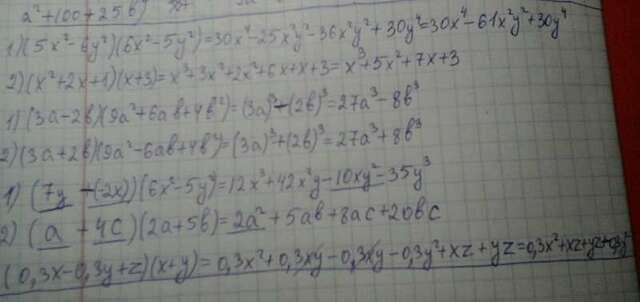 a²+100+25b
1)(5x²-6y²)(6x²-5y²)=30x⁴-25x²y²-36x²y²+30y⁴=30x⁴-61x²y²+30y⁴
2)(x²+2x+1)(x+3)=x³+3x²+2x²+6x+x+3=x³+5x²+7x+3
1)(3a-2b)(9a²+6ab+4b²)=(3a)³-(2b)³=27a³-8b³
2)(3a+2b)(9a²-6ab+4b²)=(3a)³+(2b)³=27a³+8b³
1)(7y-(-2x))(6x²-5y²)=12x³+42x²y-10xy²-35y³
2)(a+4c)(2a+5b)=2a²+5ab+8ac+20bc
(0,3x-0,3y+z)(x+y)=0,3x²+0,3xy-0,3xy-0,3y²+xz+yz=0,3x²+xz+yz+0,3y²